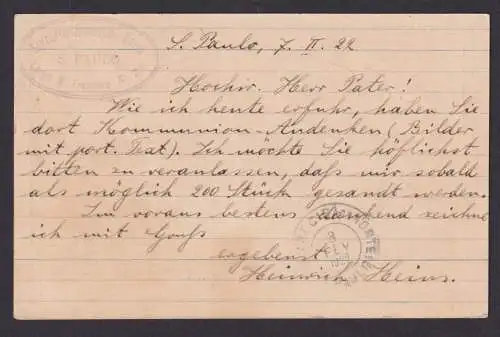 S. Paulo, 7. II. 22
Hochw. Herr Pater!
Wie ich heute erfuhr, haben Sie
dort Kommunion-Andenken (Bilder
mit port. Text). Ich möchte Sie höflichst
bitten zu veranlassen, daß mir sobald
als möglich 200 Stück gesandt werden.
Im voraus bestens dankend zeichne
ich mit Gruß
ergebenst
Heinrich Heins.
S. PAULO